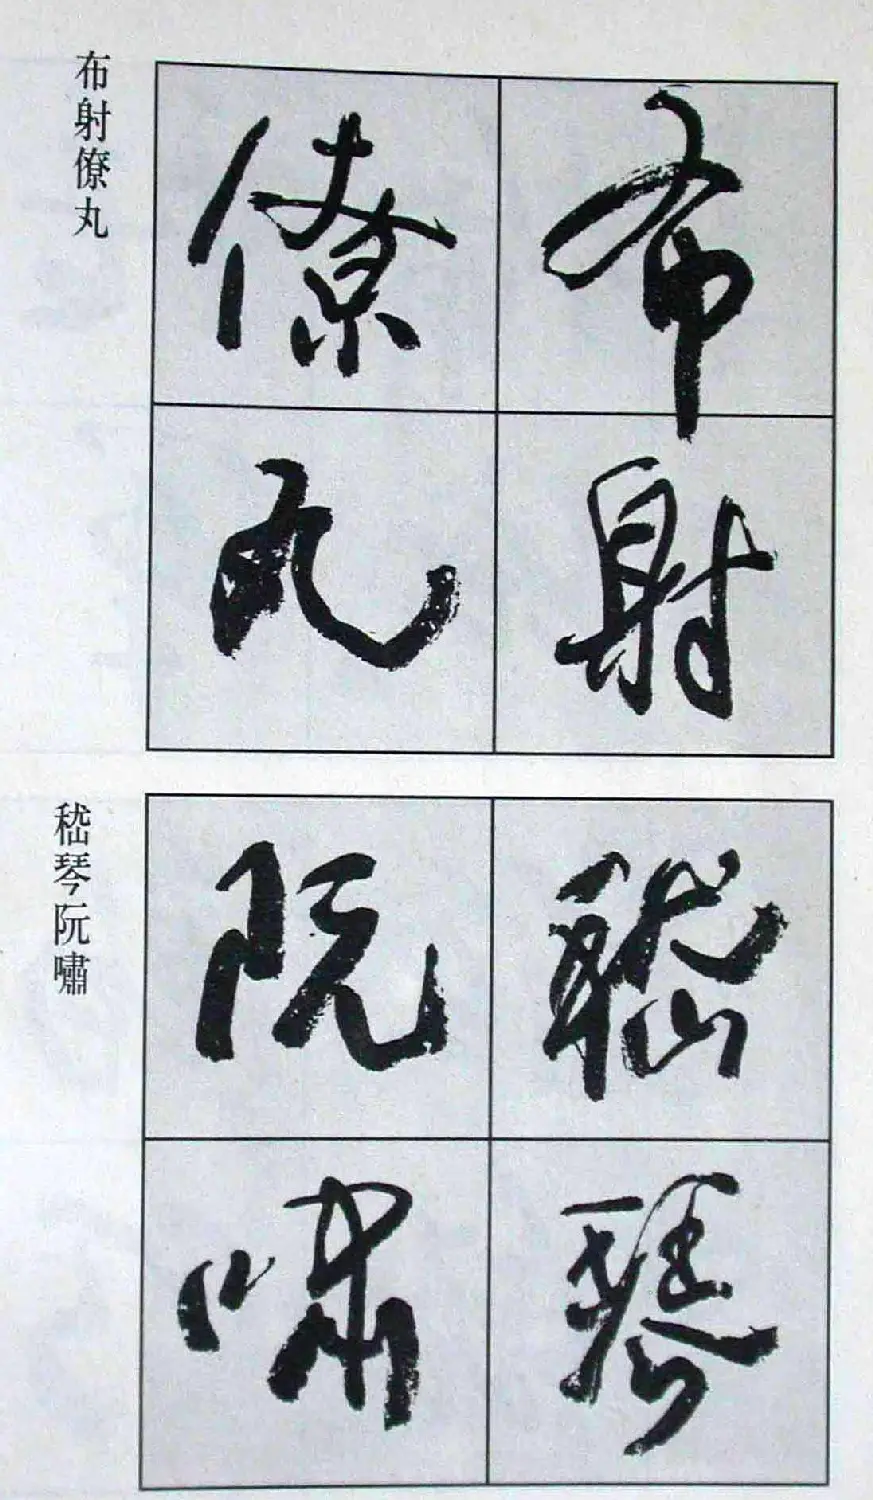 布射僚丸
布射
僚丸
嵇琴阮嘯
嵇琴
阮嘯